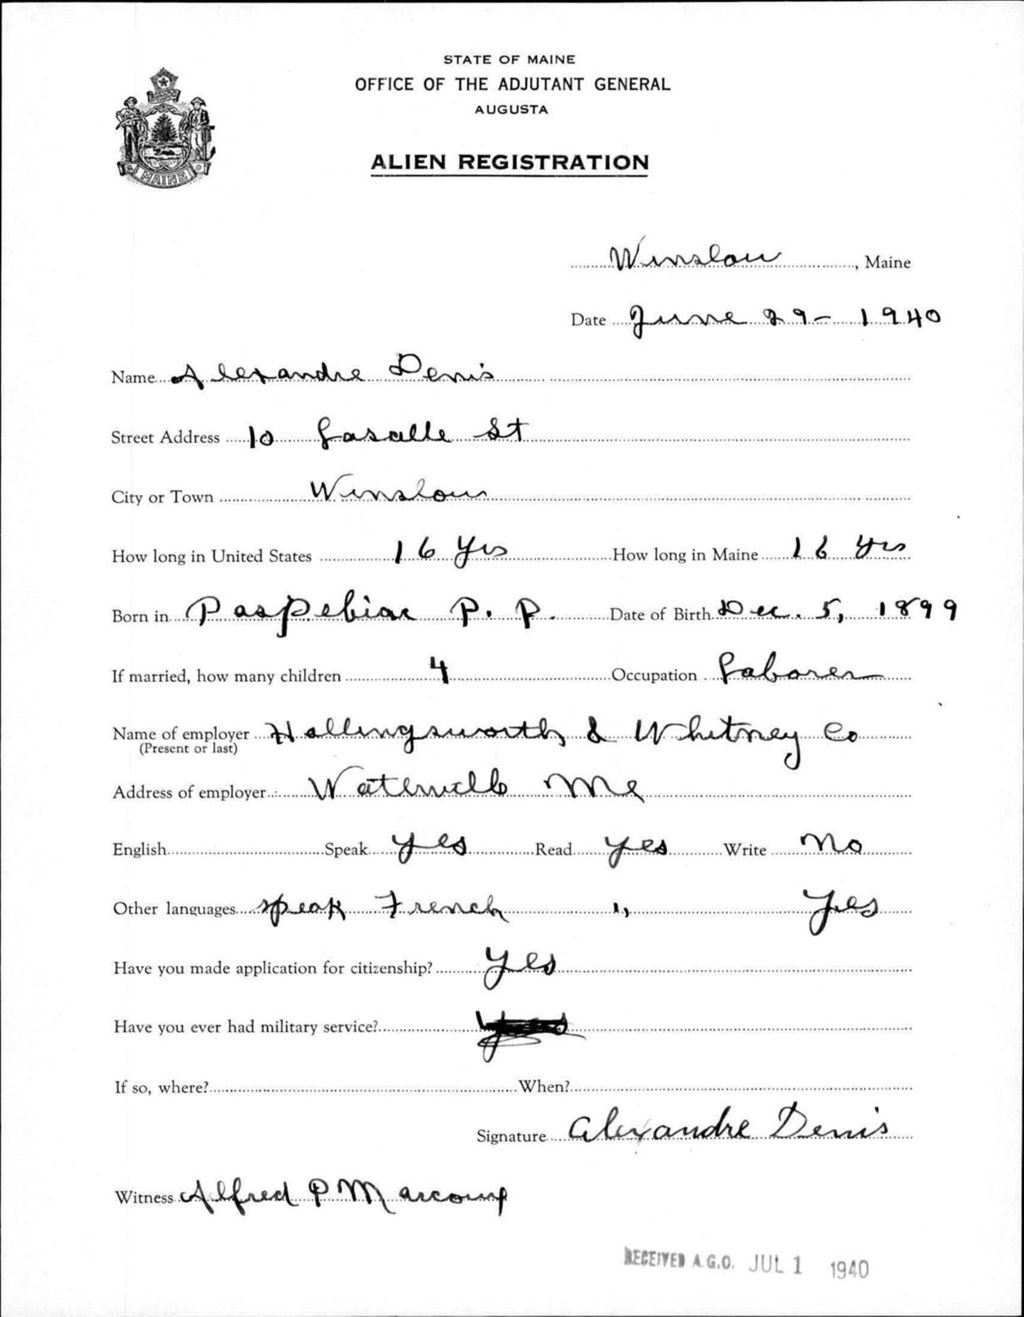 STATE OF MAINE
OFFICE OF THE ADJUTANT GENERAL
AUGUSTA
ALIEN REGISTRATION
MAINE
Winslow, Maine
Date June 29 - 1940
Name Alexandre Denis
Street Address 10 Lasalle St
City or Town Winslow
How long in United States 16 Yrs How long in Maine 16 Yrs
Born in Paspebiac P. P. Date of Birth Dec. 5, 1899
If married, how many children 4 Occupation Laborer
Name of employer Hollingsworth & Whitney Co
(Present or last)
Address of employer Waterville Me
English Speak Yes Read Yes Write No
Other languages speak French " Yes
Have you made application for citizenship? Yes
Have you ever had military service?
If so, where? When?
Signature Alexandre Denis
Witness Alfred P Marcoux
RECEIVED A.G.O. JUL 1 1940